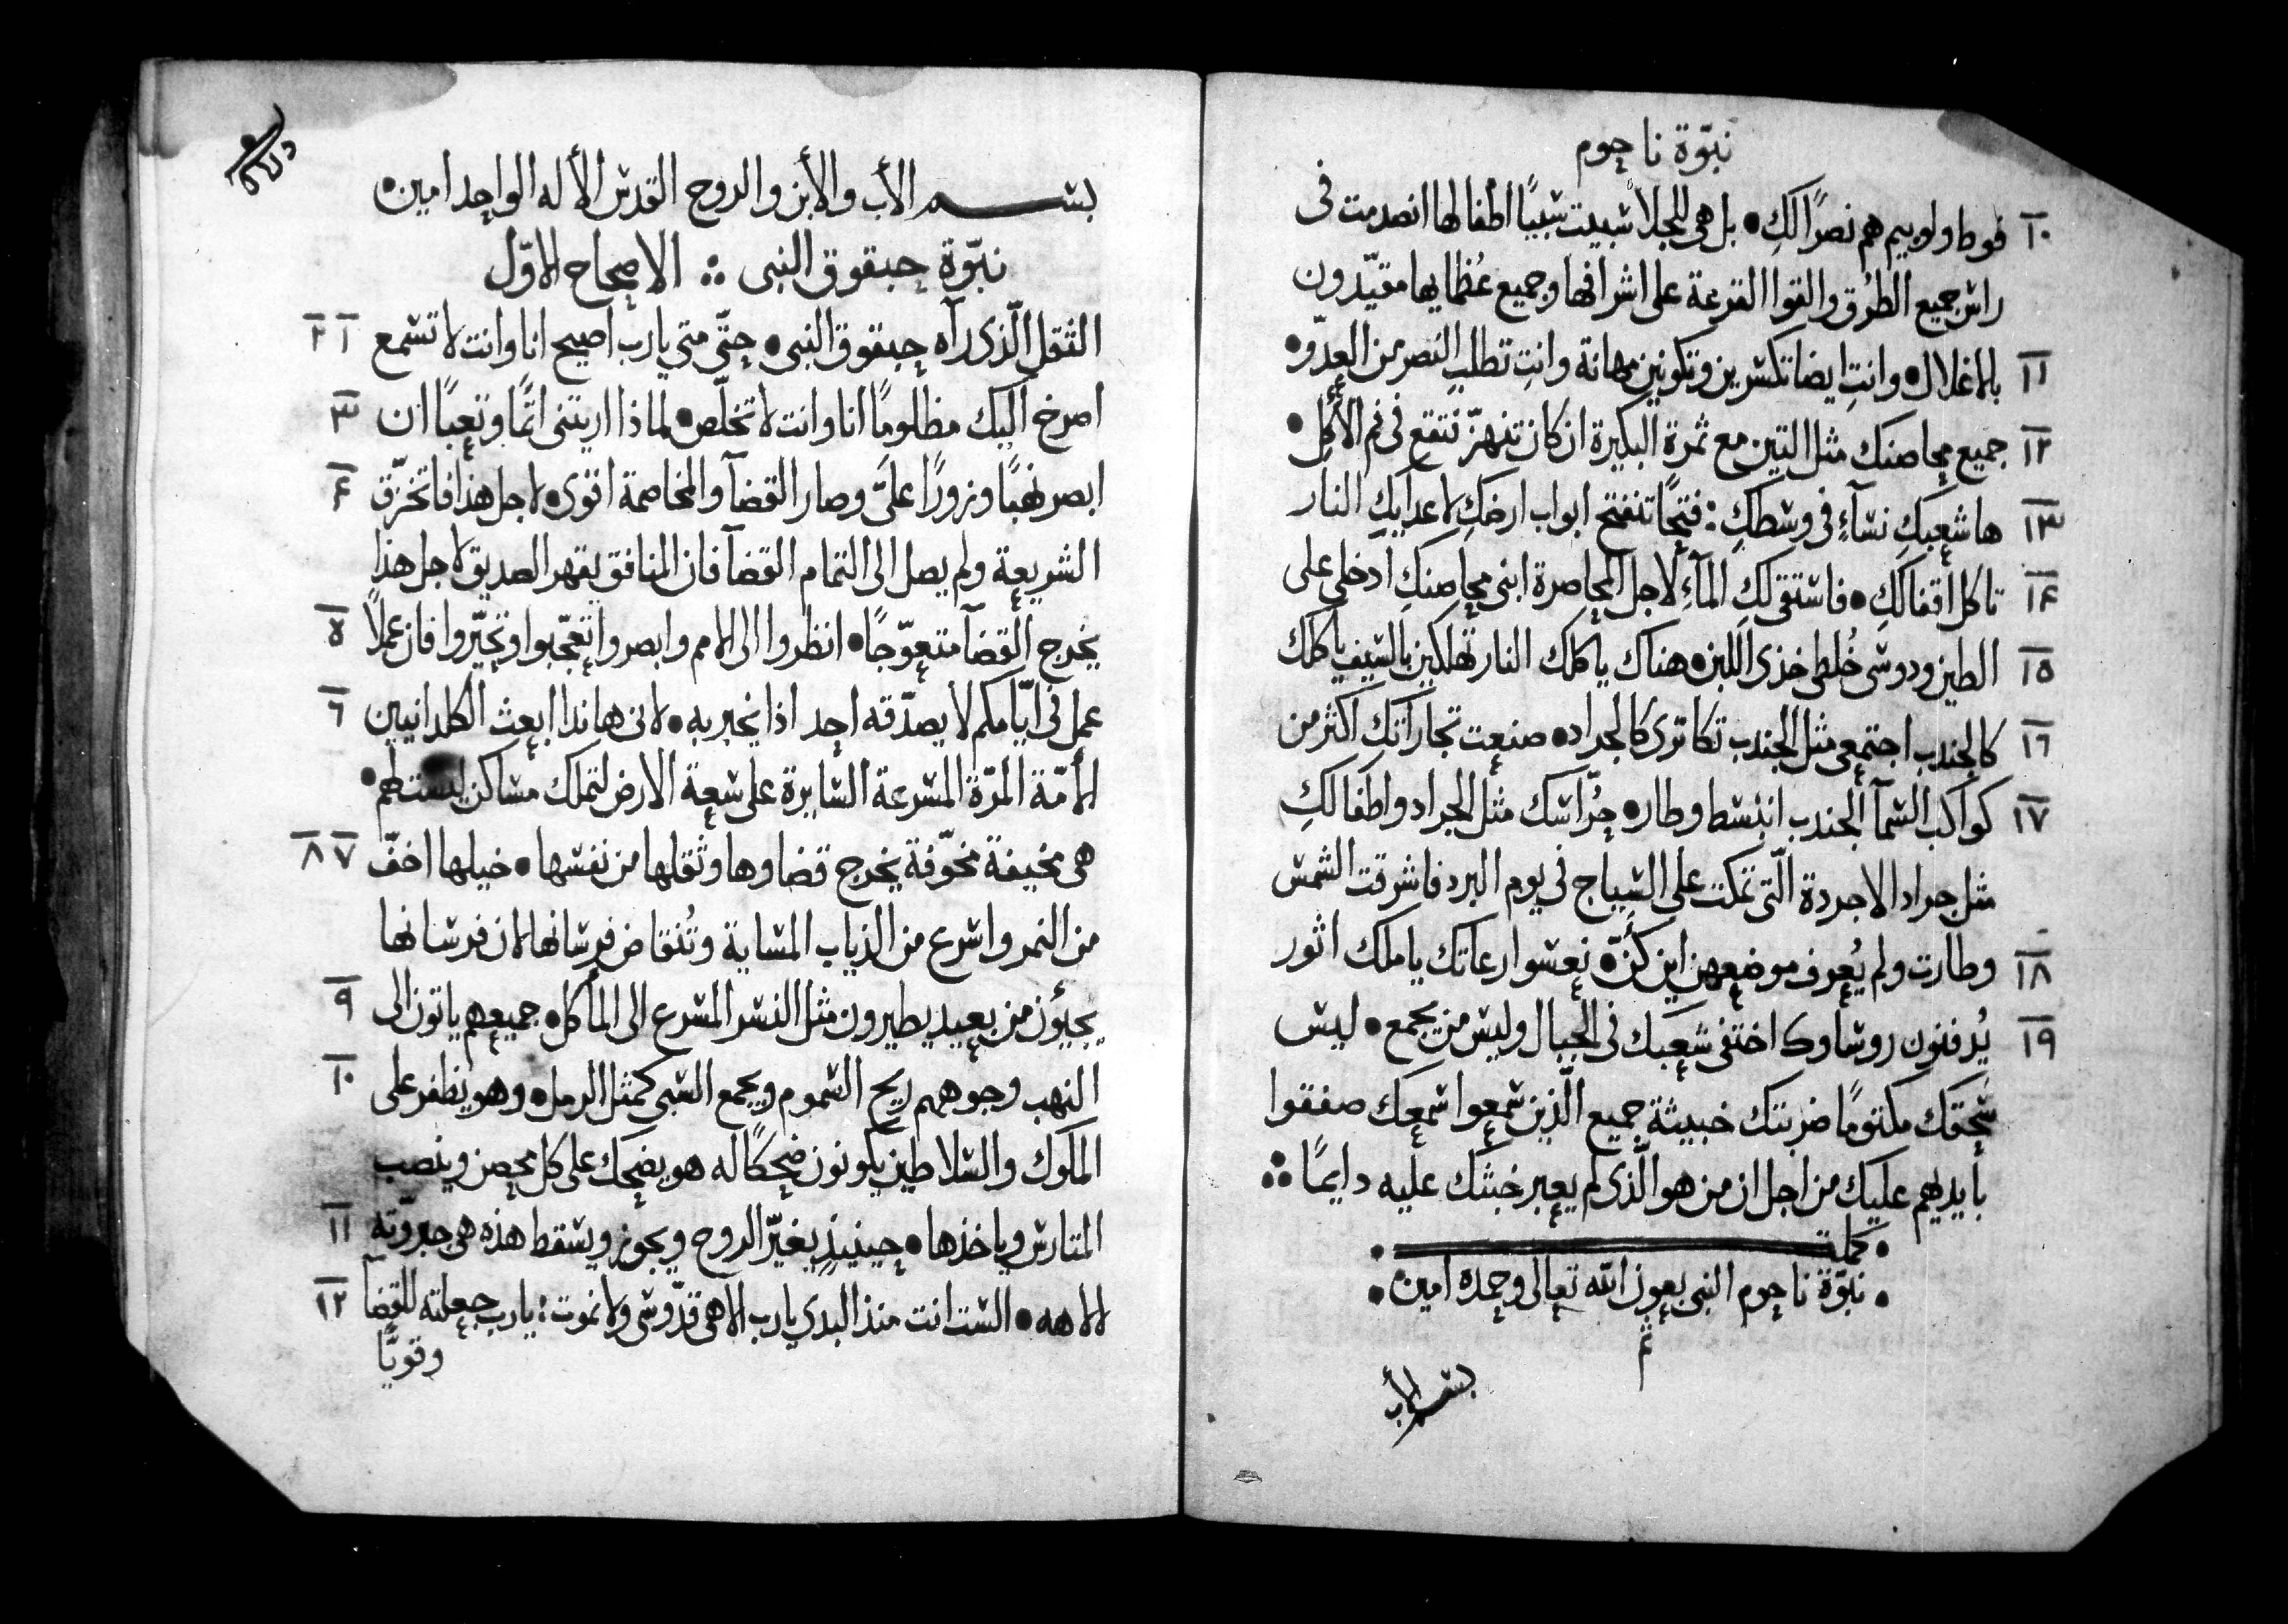 نبوّة ناحوم
١٠ فوط ولوبيم هم نصرًا لكِ • بل هى للجلا سُبيت سَبيًا اطفالها انصدمت فى
راس جميع الطرُق والقوا القرعة على اشرافها وجميع عُظمايها مقيّدون
١١ بالاغلال • وانتِ ايضا تكسرين وتكونين مهانة وانتِ تطلب النصر من العدّو •
١٢ جميع محاصنك مثل التين مع ثمرة البكيرة ان كان تنهزّ تتقع فى فم الأكل •
١٣ ها شعبكِ نساءٍ فى وسطكِ : فتحًا تنفتح ابواب ارضكِ لاعدايكِ النار
١٤ تاكل اقفالكِ • فاستقى لكِ المآءِ لاجل المحاصرة ابنى محاصنكِ ادخلى على
١٥ الطين ودوسى خُلطى خذى اللبن • هناك ياكلك النار تهلكين بالسيف ياكلك
١٦ كالجندب اجتمعى مثل الجندب تكاثرى كالجراد • صنعت تجاراتك اكثر من
١٧ كواكب السمآ الجندب انبسط وطار • حُرّاسك مثل الجراد واطفالكِ
مثل جراد الاجردة الّتى تمكت على السياج فى يوم البرد فاشرقت الشمس
١٨ وطارت ولم يُعرف موضعهن اين كُنّ • نعسوا رعاتك يا ملك اثور
١٩ يُدفنون روساوك اختفى شعبك فى الجبال وليس من يجمع • ليس
سَحقك مكتومًا ضربتك خبيثة جميع الّذين سمعوا سمعك صفقوا
بايديهم عليك من اجل ان من هو الّذى لم يعبر خبثك عليه دايمًا ∴
• كملت •
• نبوّة ناحوم النبى بعون الله تعالى وحمده امين •
تم
بسم الأب
بسم الأب والأبن والروح القدس الأله الواحد امين •
نبوّة حبقوق النبى ∴ الاصحاح الاوّل
١ ٢ الثقل الّذى رآه حبقوق النبى • حتّى متى يارب اصيح انا وانت لا تسمع
٣ اصرخ اليك مظلومًا انا وانت لا تخلّص • لماذا اريتنى اثمًا وتعبًا ان
٤ ابصر نهبًا وزورًا علىّ وصار القضآ والمخاصمة اقوى • لاجل هذا فاتخزّق
الشريعة ولم يصل الى التمام القضآ فان المنافق يقهر الصديق لاجل هذا
٥ يخرج القضآ متعوّجًا • انظروا الى الامم وابصروا تعجّبوا وتحيّروا فان عملًا
٦ عمل فى ايّامكم لا يصدّقه احد اذا يخبر به • لانى هانذا ابعث الكلدانيين
الأمّة المرّة المسرعة السايرة على سعة الارض لتملك مساكن ليست لهم •
٧ ٨ هى مخيفة مخوّفة يخرج قضاوها وثقلها من نفسها • خيلها اخفّ
من النمر واسرع من الذياب المساية وتُنقاض فرسانها لان فرسانها
٩ يجيُون من بعيد يطيرون مثل النسر المسرع الى المأكل • جميعهم ياتون الى
١٠ النهب وجوههم ريح السموم ويجمع السبى كمثل الرمل • وهو يظفر على
الملوك والسلاطين يكونون ضحكًا له هو يضحك على كل محصن وينصب
١١ المتارس وياخذها • حينيذٍ يغيّر الروح ويجوز ويسقط هذه هى جبروّته
١٢ لالاهه • الست انت منذ البدى يارب الاهى قدّوسى ولا نموت : يارب جعلته للقضآ
وقويًّا